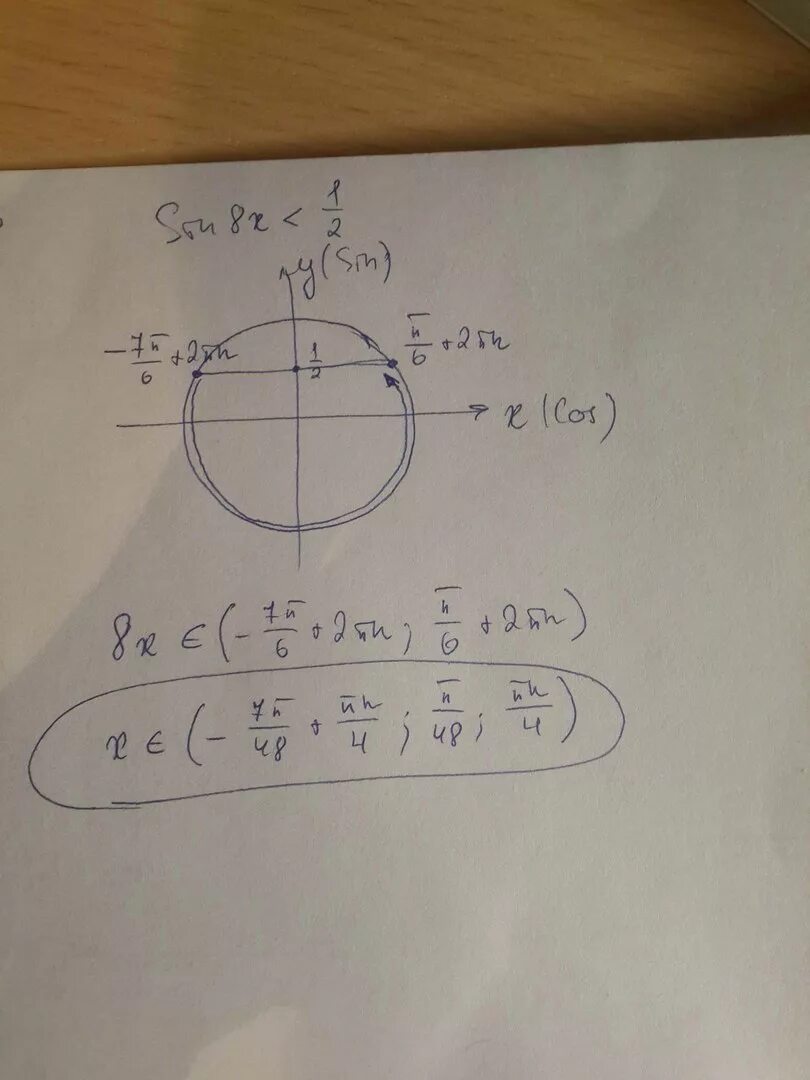 Sin 8x < 1/2
y (Sin)
-7π/6 + 2πn
1/2
π/6 + 2πn
x (Cos)
8x ∈ (-7π/6 + 2πn; π/6 + 2πn)
x ∈ (-7π/48 + πn/4; π/48; πn/4)